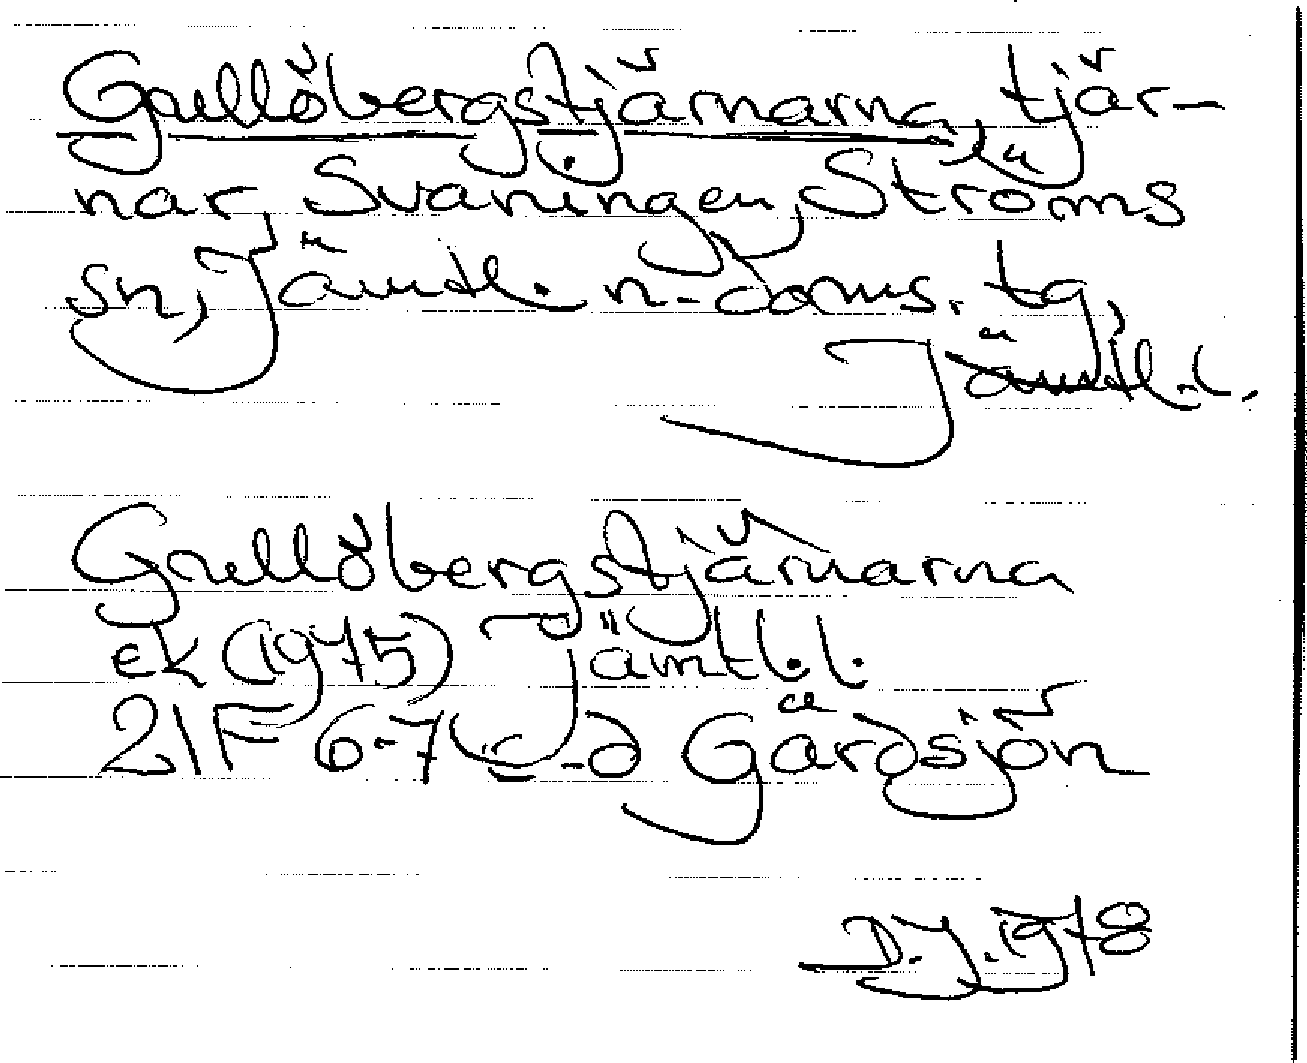 Gullöbergstjärnarna, tjär-
nar, Svaningen, Ströms
sn, Jämtl. n-doms. tg,
Jämtl.l.
Gullöbergstjärnarna
ek (1975) Jämtl.l.
21F 6-7 c-d Gärdsjön
D.J. 1978